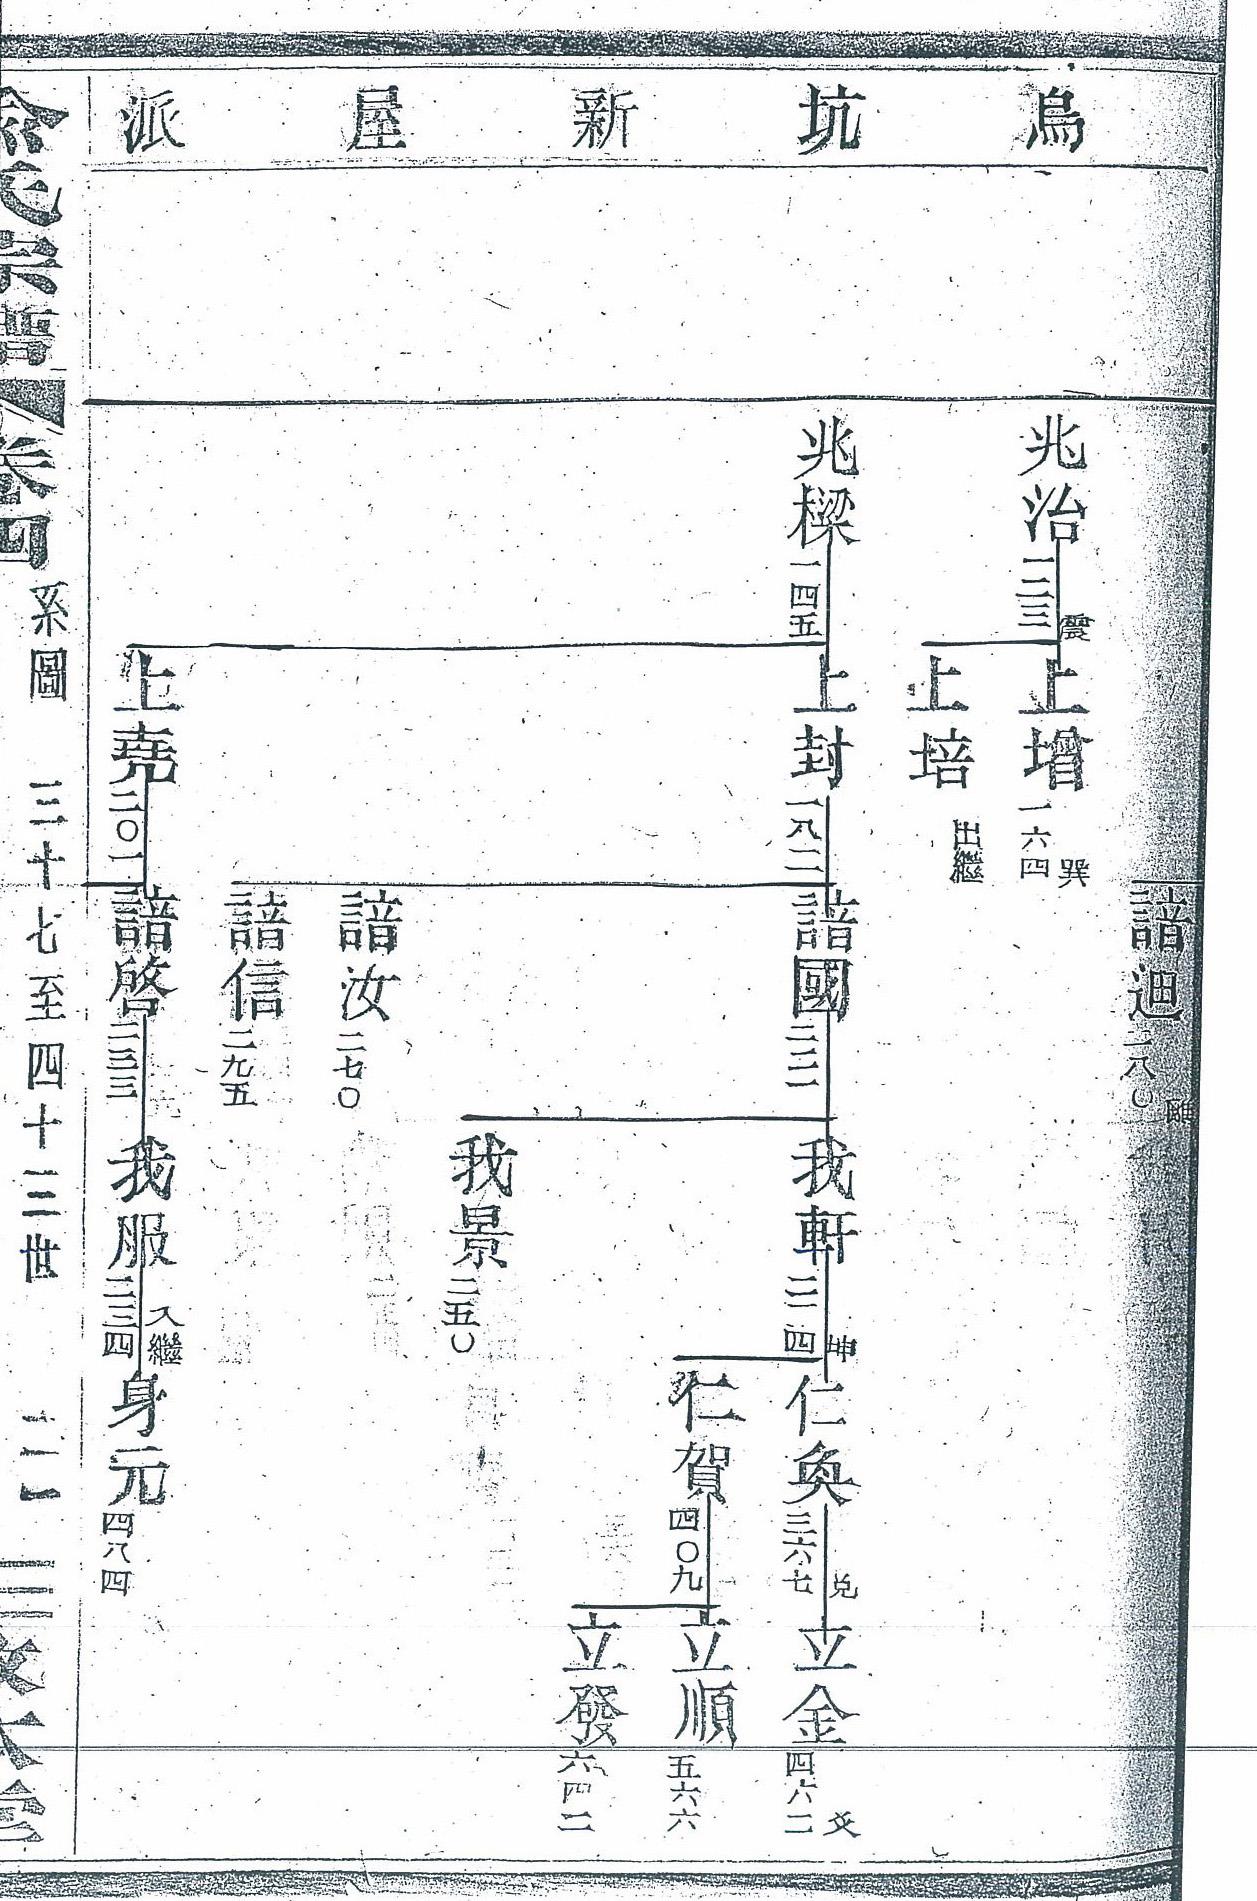 烏坑新屋派
兆治
一二三
震
兆樑
一四五
上增
一六四
巽
上培
出繼
上封
一八二
上堯
二〇一
諳迪
一八〇
諳國
二二一
諳汝
二七〇
諳信
二九五
諳啓
二三三
我軒
二一四
坤
我景
二五〇
我服
二三四
入繼
仁奐
三六七
兑
仁賀
四〇九
身元
四八四
立金
四六二
爻
立順
五六六
立發
六四二
氏宗譜
卷四
系圖
三十七至四十三世